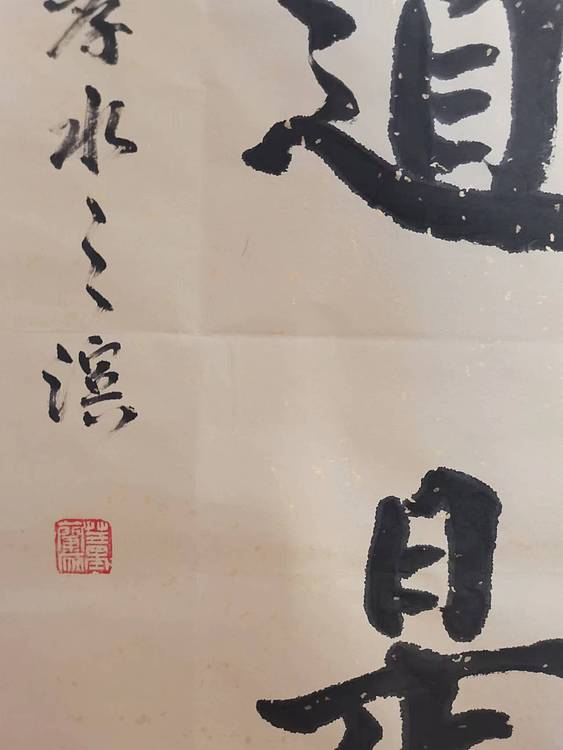 道是
水之滨